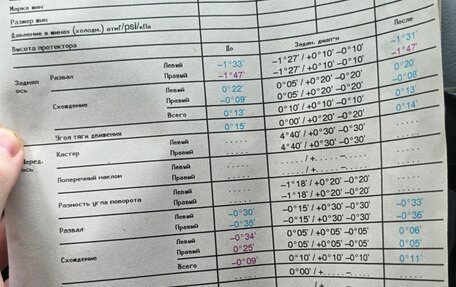 Марка шин
Размер шин
Давление в шинах (холодн.) атм²/psi/кПа
Высота протектора
До Задан. диап-н После
Задняя ось Развал Левый −1°33' −1°27' / +0°10' −0°10' −1°31'
Правый −1°47' −1°27' / +0°10' −0°10' −1°47'
Схождение Левый 0°22' 0°05' / +0°20' −0°20' 0°20'
Правый −0°09' 0°05' / +0°20' −0°20' −0°08'
Всего 0°13' 0°10' / +0°10' −0°10' 0°13'
Угол тяги движения 0°15' 0°00' / +0°20' −0°20' 0°14'
Перед. ось Кастер Левый ..... 4°40' / +0°30' −0°30' .....
Правый ..... 4°40' / +0°30' −0°30' .....
Поперечный наклон Левый ..... ..... / +..... −..... .....
Правый ..... ..... / +..... −..... .....
Разность угла поворота Левый ..... −1°18' / +0°20' −0°20' .....
Правый ..... −1°18' / +0°20' −0°20' .....
Развал Левый −0°30' −0°15' / +0°30' −0°30' −0°33'
Правый −0°35' −0°15' / +0°30' −0°30' −0°36'
Схождение Левый −0°34' 0°05' / +0°05' −0°05' 0°06'
Правый 0°25' 0°05' / +0°05' −0°05' 0°05'
Всего −0°09' 0°10' / +0°10' −0°10' 0°11'
0°00' / +.....